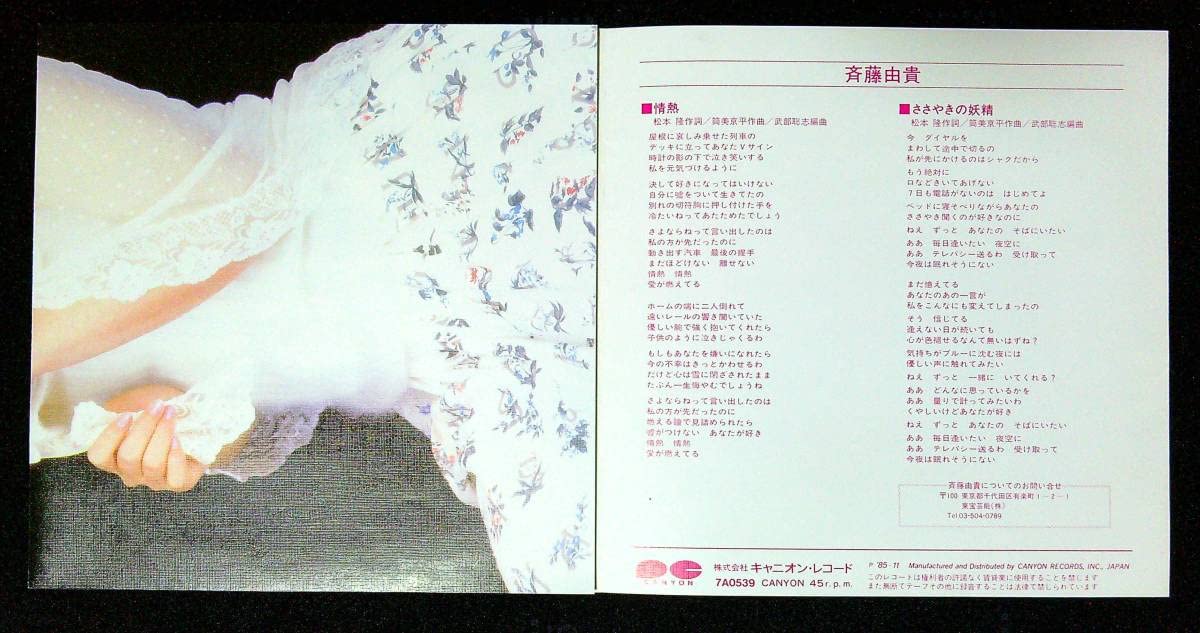 斉藤由貴
■情熱
松本 隆作詞／筒美京平作曲／武部聡志編曲
屋根に哀しみ乗せた列車の
デッキに立ってあなたVサイン
時計の影の下で泣き笑いする
私を元気づけるように
決して好きになってはいけない
自分に嘘をついて生きてたの
別れの切符胸に押し付けた手を
冷たいねってあたためたでしょう
さよならねって言い出したのは
私の方が先だったのに
動き出す汽車 最後の握手
まだほどけない 離せない
情熱 情熱
愛が燃えてる
ホームの端に二人倒れて
遠いレールの響き聞いていた
優しい腕で強く抱いてくれたら
子供のように泣きじゃくるわ
もしもあなたを嫌いになれたら
今の不幸はきっとかわせるわ
だけど心は雪に閉ざされたまま
たぶん一生悔やむでしょうね
さよならねって言い出したのは
私の方が先だったのに
燃える瞳で見詰められたら
嘘がつけない あなたが好き
情熱 情熱
愛が燃えてる
■ささやきの妖精
松本 隆作詞／筒美京平作曲／武部聡志編曲
今 ダイヤルを
まわして途中で切るの
私が先にかけるのはシャクだから
もう絶対に
口などきいてあげない
7日も電話がないのは はじめてよ
ベッドに寝そべりながらあなたの
ささやき聞くのが好きなのに
ねえ ずっと あなたの そばにいたい
ああ 毎日逢いたい 夜空に
ああ テレパシー送るわ 受け取って
今夜は眠れそうにない
まだ憶えてる
あなたのあの一言が
私をこんなにも変えてしまったの
そう 信じてる
逢えない日が続いても
心が色褪せるなんて無いはずね？
気持ちがブルーに沈む夜には
優しい声に触れてみたい
ねえ ずっと 一緒に いてくれる？
ああ どんなに思っているかを
ああ 量りで計ってみたいわ
くやしいけどあなたが好き
ねえ ずっと あなたの そばにいたい
ああ 毎日逢いたい 夜空に
ああ テレパシー送るわ 受け取って
今夜は眠れそうにない
斉藤由貴についてのお問い合せ
〒100 東京都千代田区有楽町1-2-1
東宝芸能(株)
Tel.03-504-0789
CANYON
株式会社 キャニオン・レコード
7A0539 CANYON 45r.p.m.
P '85・11 Manufactured and Distributed by CANYON RECORDS, INC., JAPAN
このレコードは権利者の許諾なく賃貸業に使用することを禁じます
また無断てテープその他に録音することは法律で禁じられています。